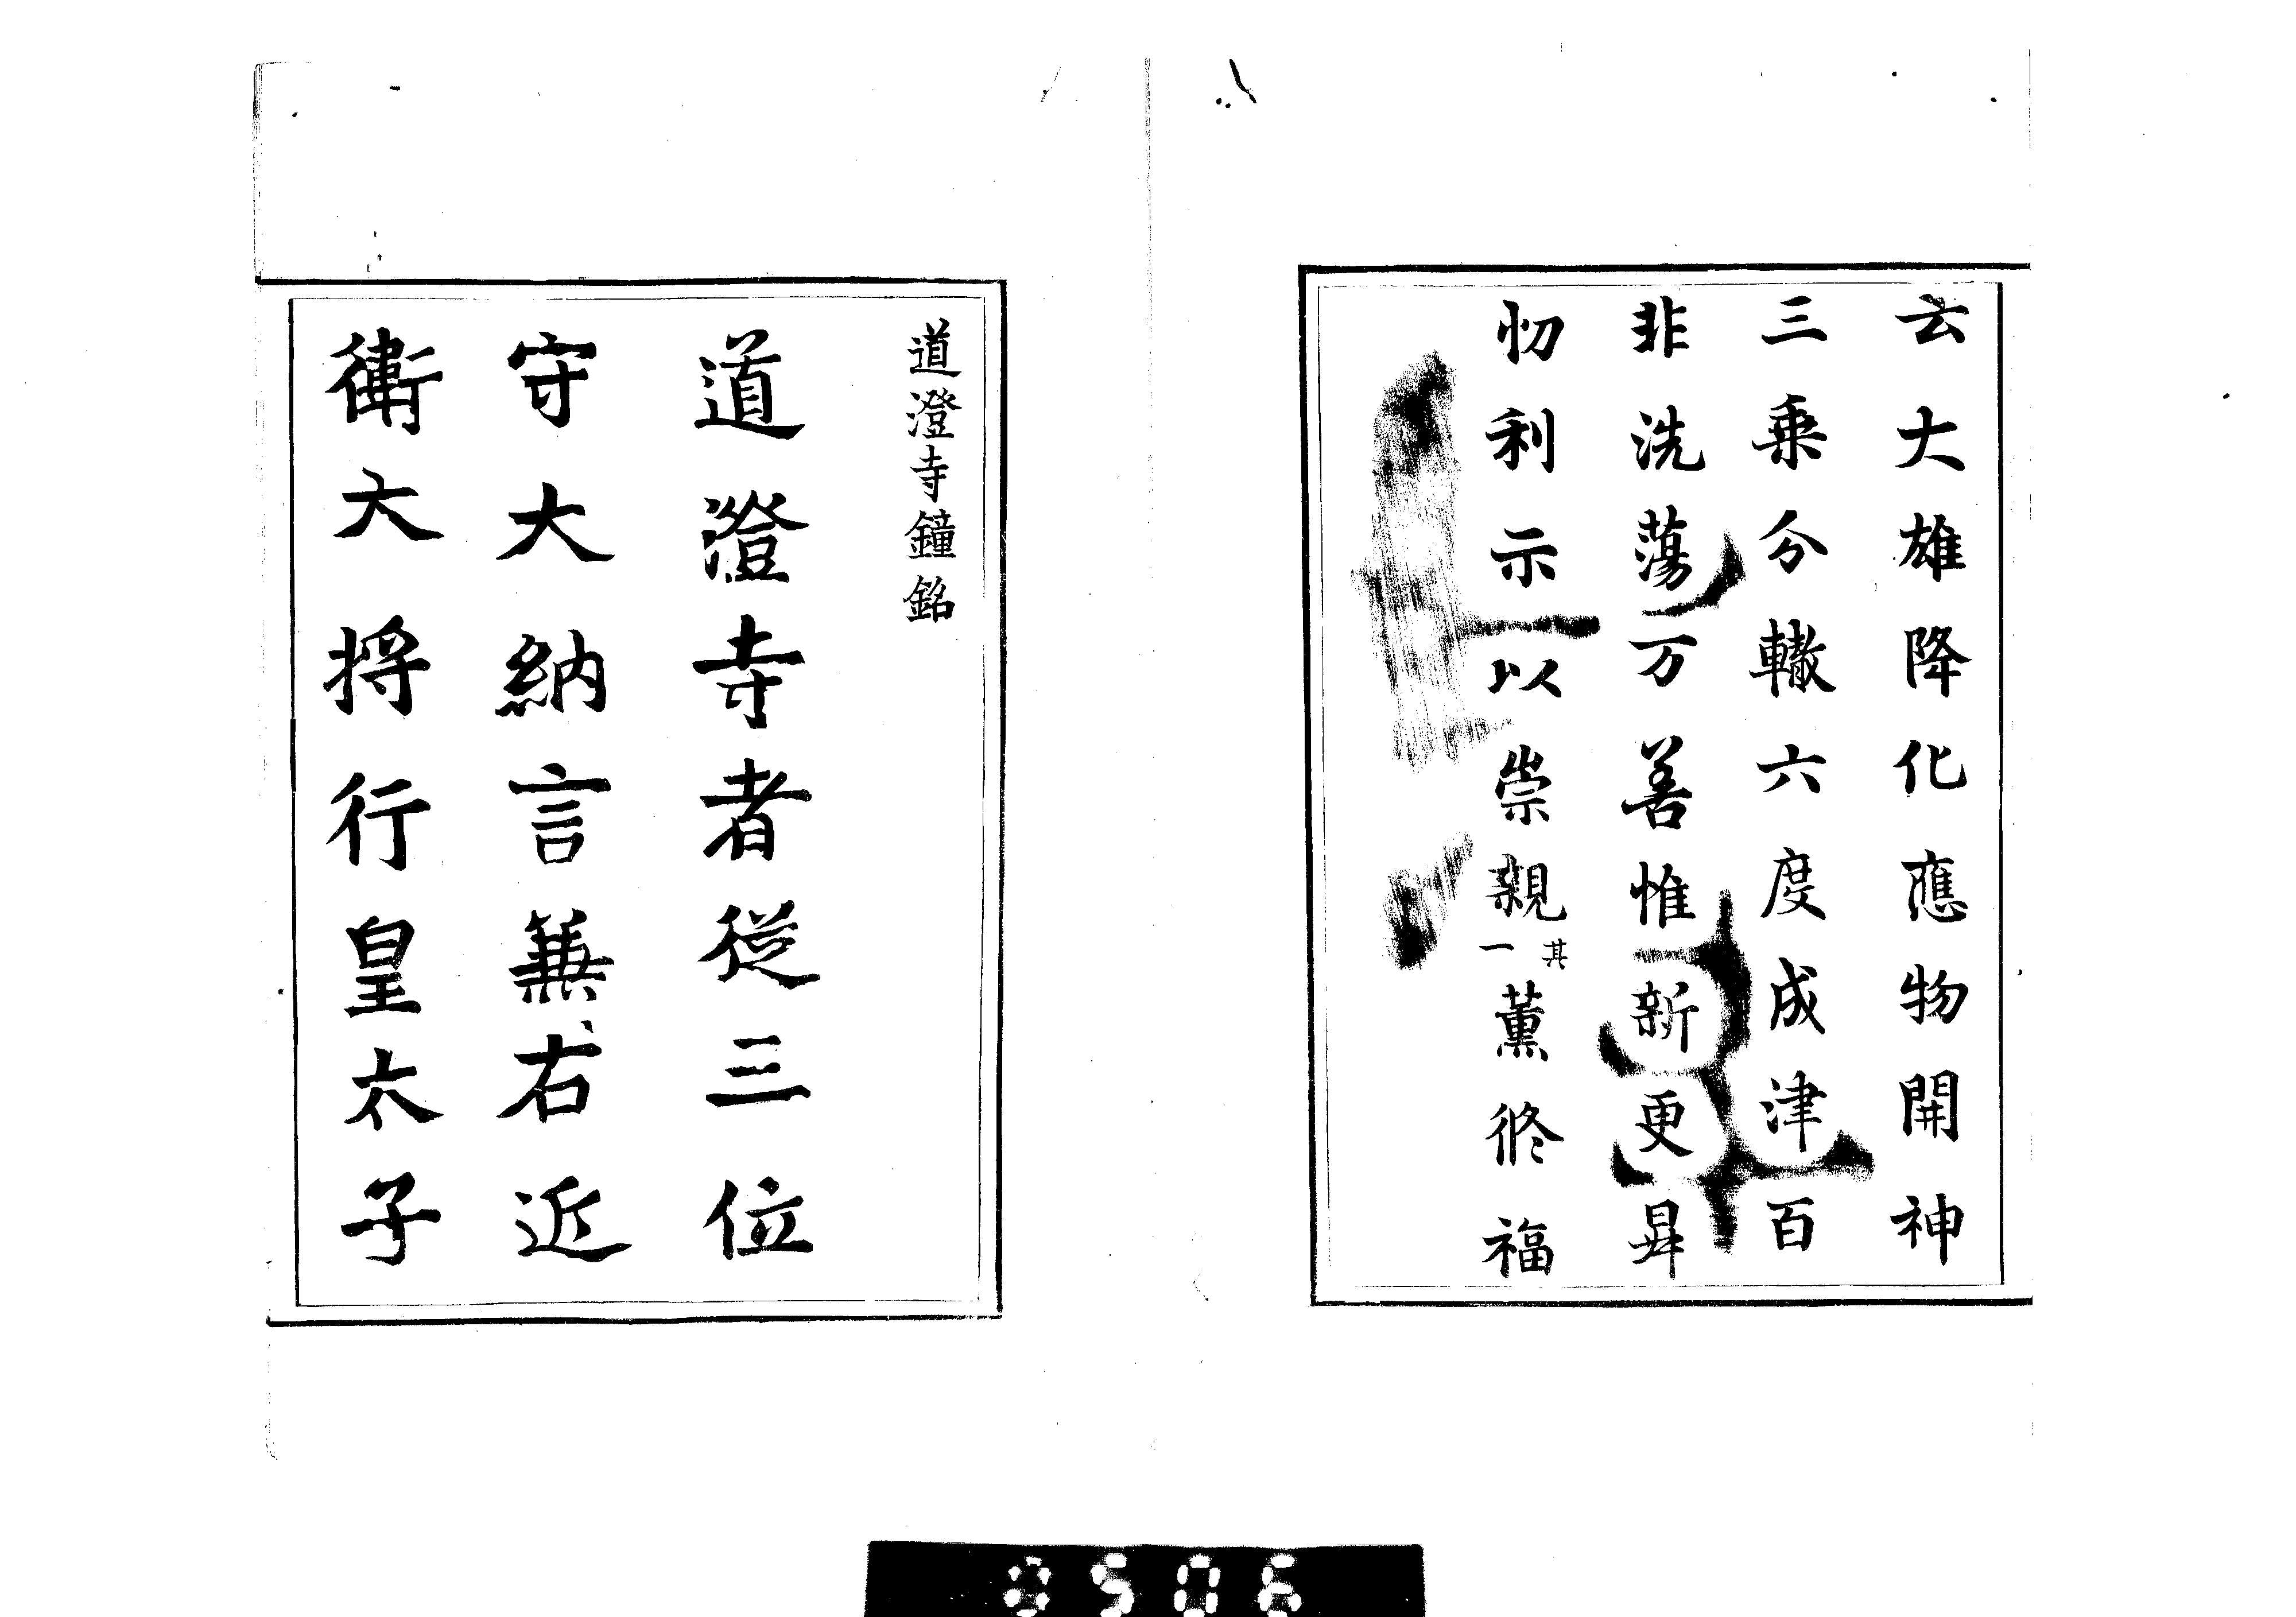 云大雄降化應物開神
三乗分轍六度成津百
非洗蕩万善惟新更昇
忉利示以崇親其一薫修福
道澄寺鐘銘
道澄寺者従三位
守大納言兼右近
衛大将行皇太子
0506